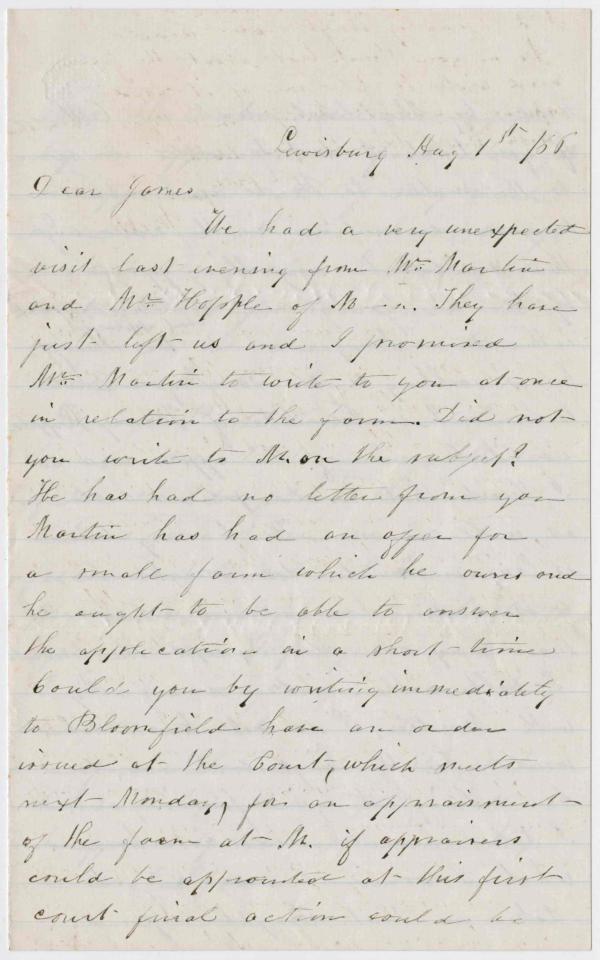 Lewisburg Aug 1st /66
Dear James
We had a very unexpected
visit last evening from Mr. Martin
and Mr. Hopple of M--n. They have
just left us and I promised
Mr. Martin to write to you at once
in relation to the farm. Did not
you write to M. on the subject?
He has had no letter from you
Martin has had an offer for
a small farm which he owns and
he ought to be able to answer
the application in a short time
Could you by writing immediately
to Bloomfield have an order
issued at the Court, which meets
next Monday, for an appraisment
of the farm at M. if appraisers
could be appointed at this first
court final action could be